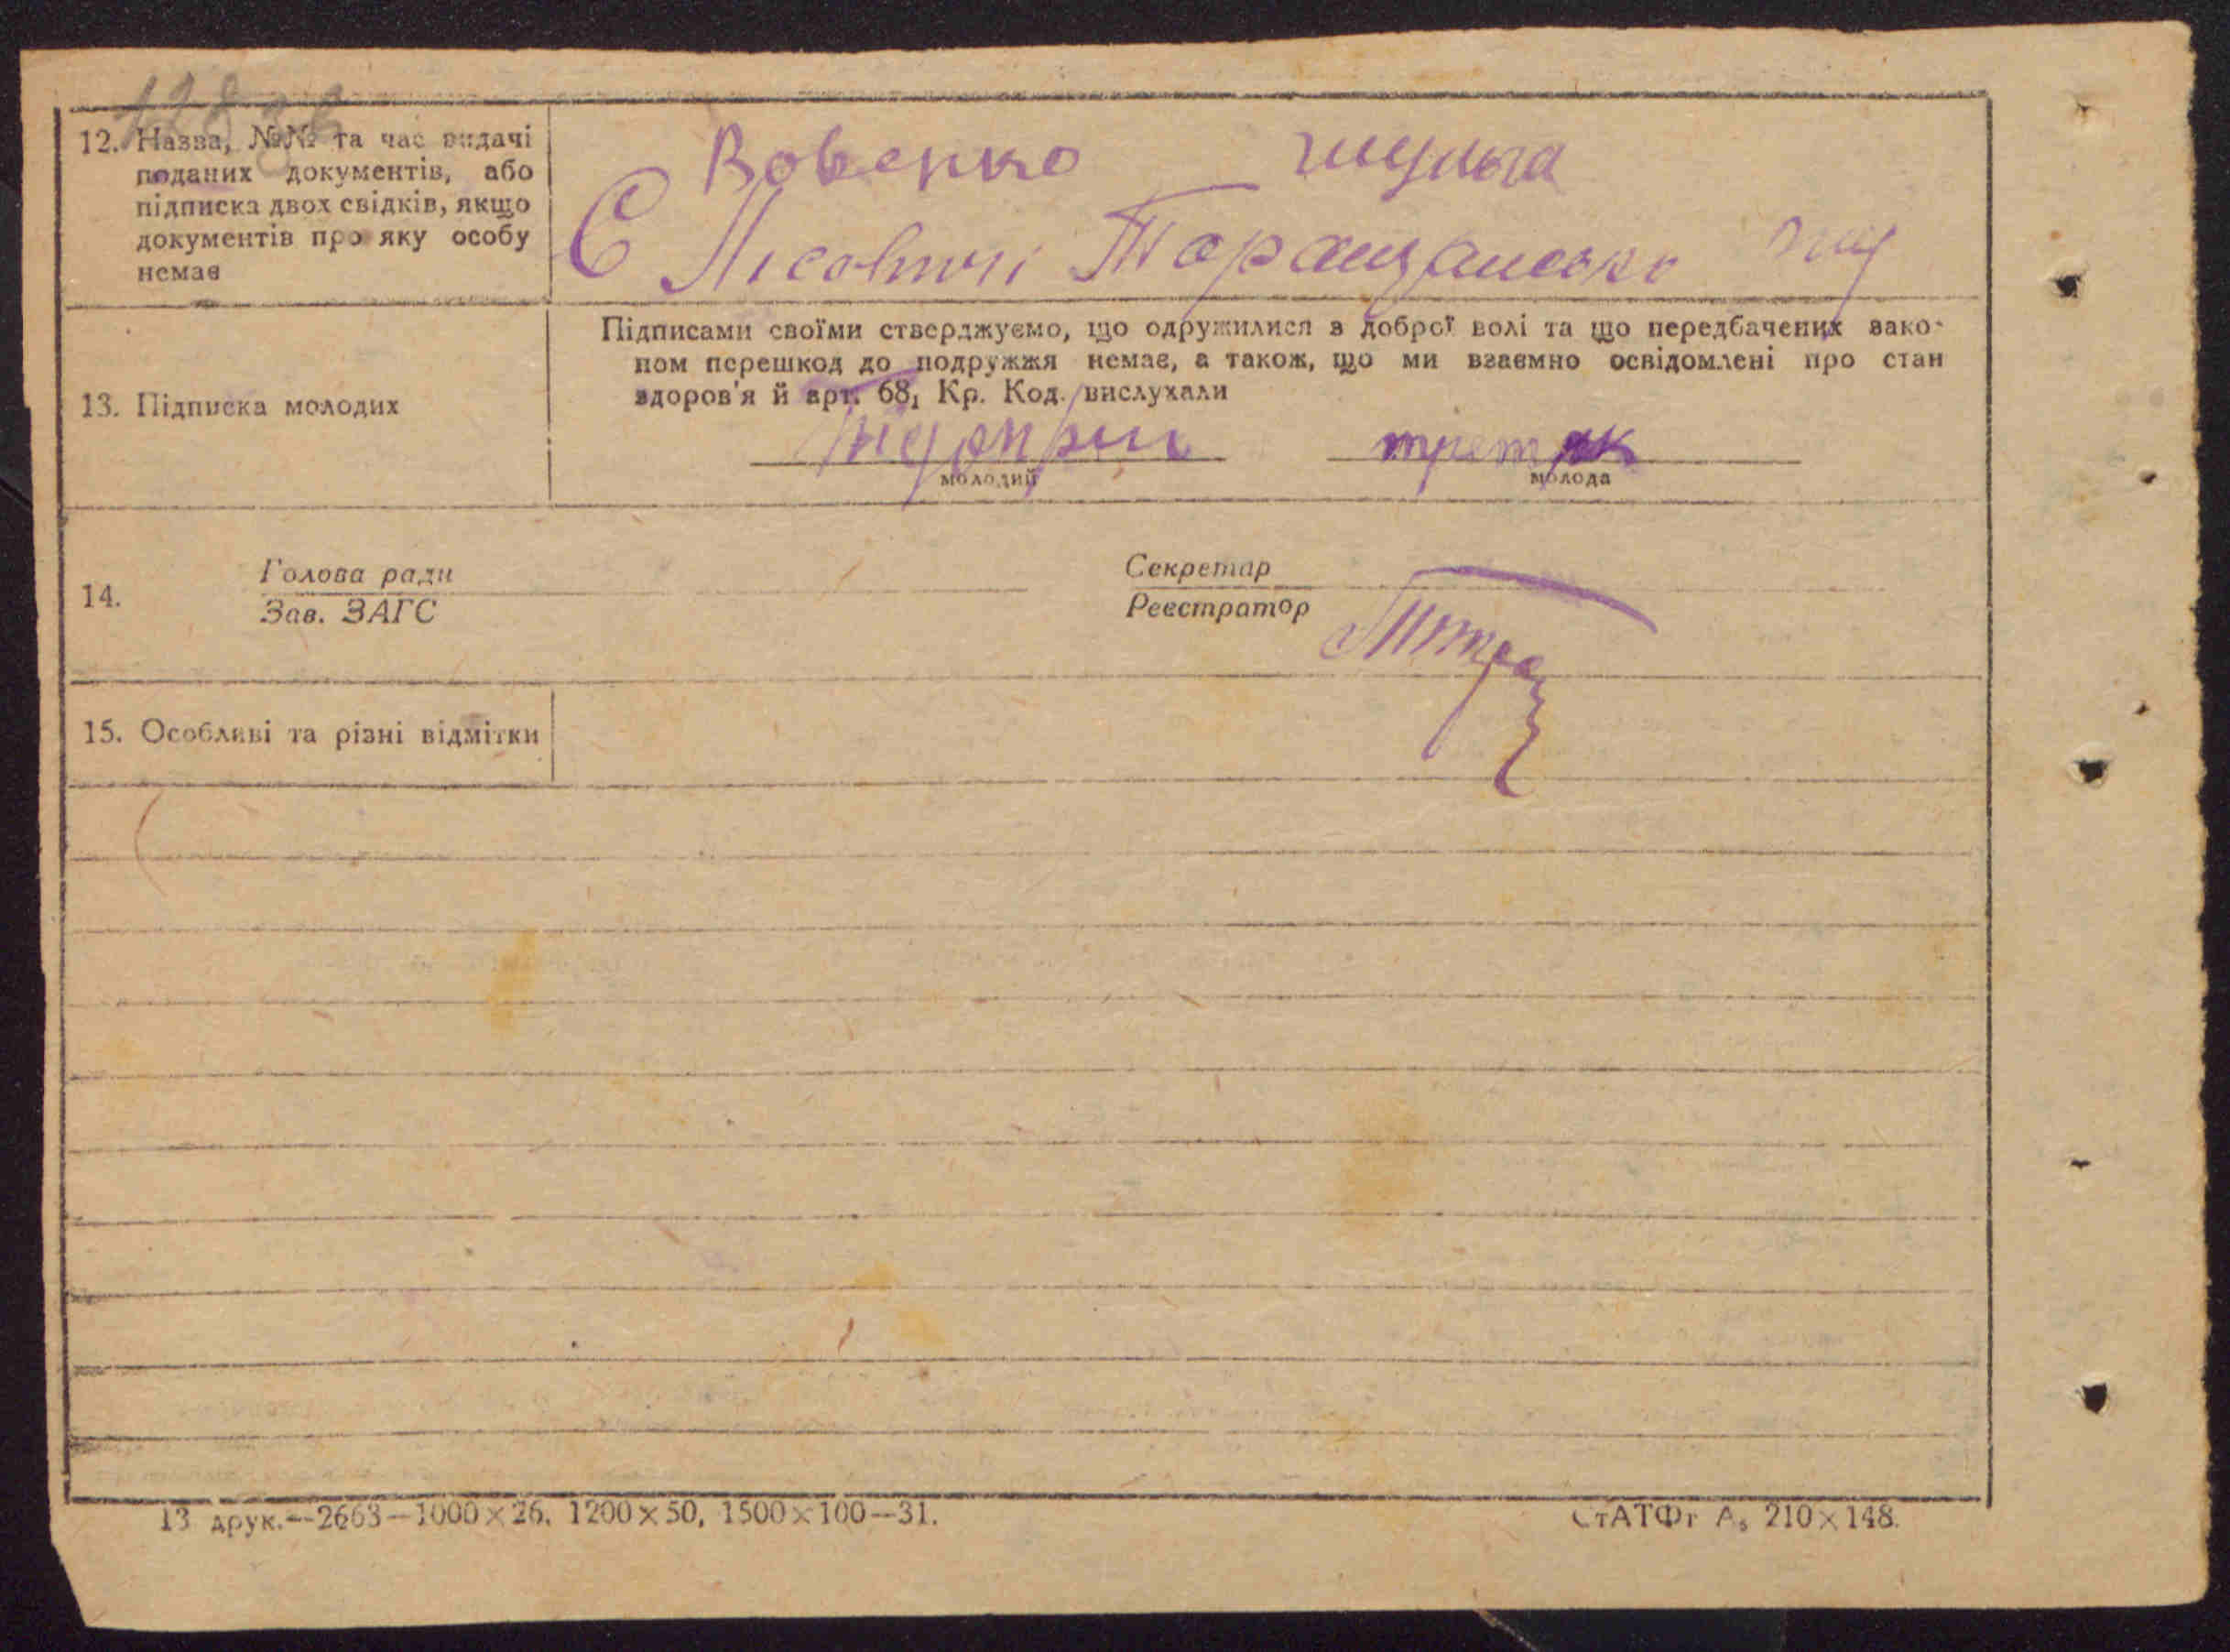 12. Назва, №№ та час видачі
поданих документів, або
підписка двох свідків, якщо
документів про яку особу
немає
Вовенко шульга
С Лісовичі Таращансько
13. Підписка молодих
Підписами своїми стверджуємо, що одружилися з доброї волі та що передбачених зако-
ном перешкод до подружжя немає, а також, що ми взаємно освідомлені про стан
здоров'я й арт. 68, Кр. Код. вислухали
третяк
молодий молода
14.
Голова ради
Зав. ЗАГС
Секретар
Реєстратор
15. Особливі та різні відмітки
13 друк.—2663—1000×26, 1200×50, 1500×100—31.
СтАТФт А₅ 210×148.